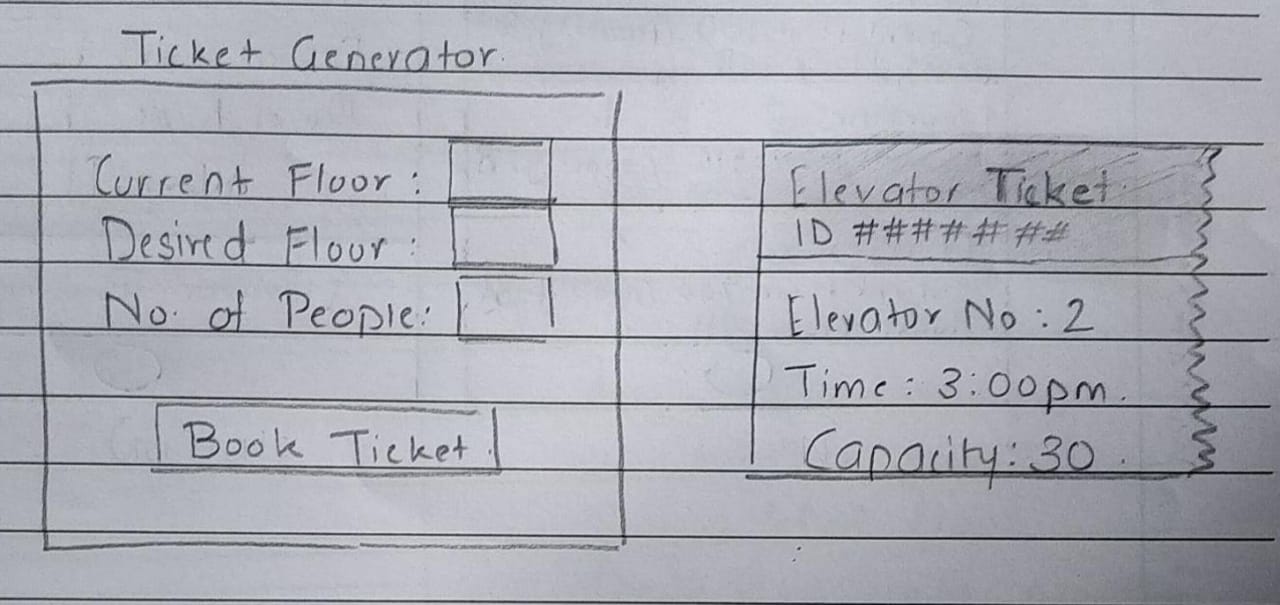 Ticket Generator.
Current Floor :
Desired Floor :
No. of People:
Book Ticket.
Elevator Ticket.
ID #######
Elevator No : 2
Time : 3:00pm.
Capacity: 30.